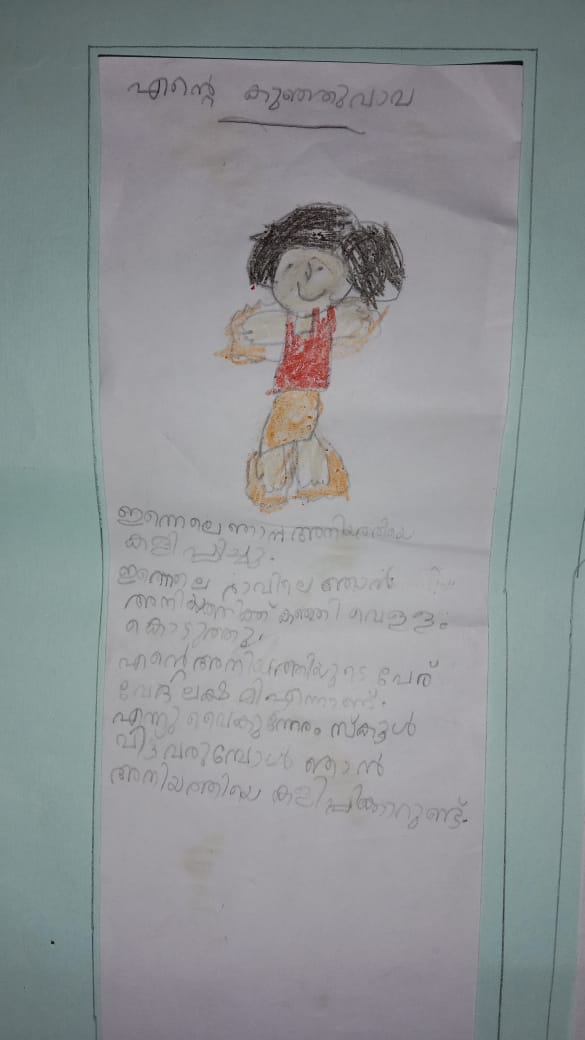 എന്റെ കുഞ്ഞുവാവ
ഇന്നെലെ ഞാൻ അനിയത്തിയെ
കളിപ്പിച്ചു.
ഇന്നെലെ രാവിലെ ഞാൻ
അനിയത്തിക്ക് കഞ്ഞി വെള്ളം
കൊടുത്തു.
എന്റെ അനിയത്തിയുടെ പേര്
വേദ ലക്ഷ്മി എന്നാണ്.
എന്നും വൈകുന്നേരം സ്കൂൾ
വിട്ട് വരുമ്പോൾ ഞാൻ
അനിയത്തിയെ കളിപ്പിക്കാറുണ്ട്.